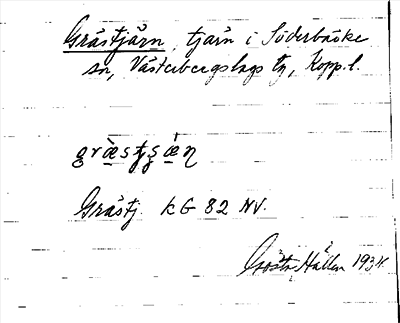 Gråstjärn, tjärn i Söderbärke
sn, Västerbergslags tg, Kopp. l.
Gråstj. kG 82 NV.
Gösta Hallen 1934.